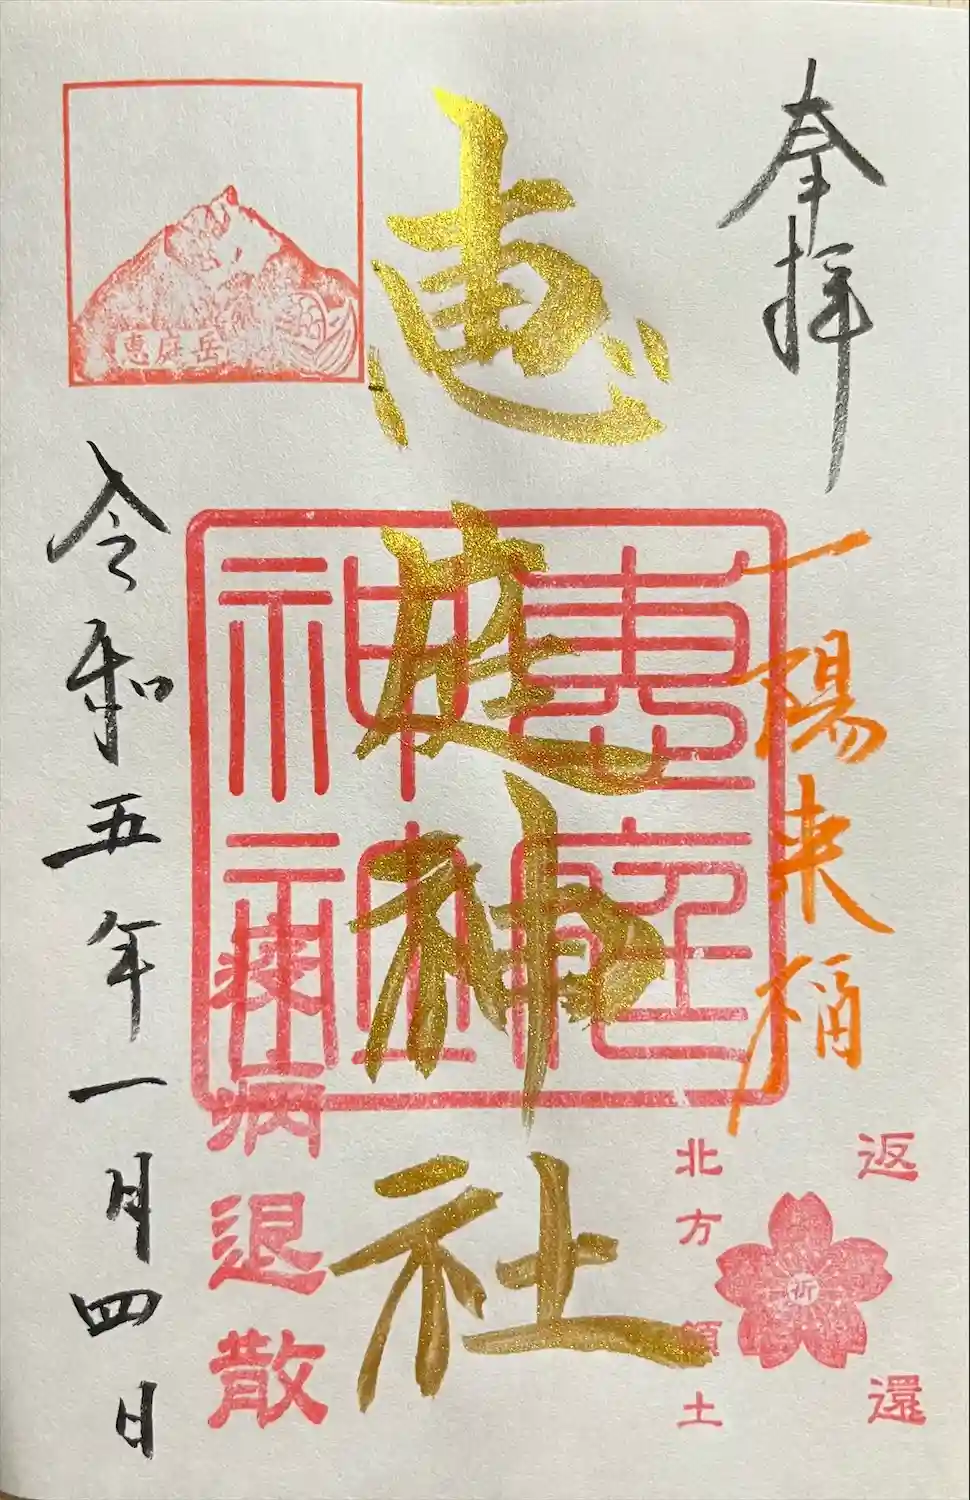 奉拝
一陽来福
返還
祈
北方領土
恵庭神社
恵庭神社
疫病退散
恵庭岳
令和五年一月四日